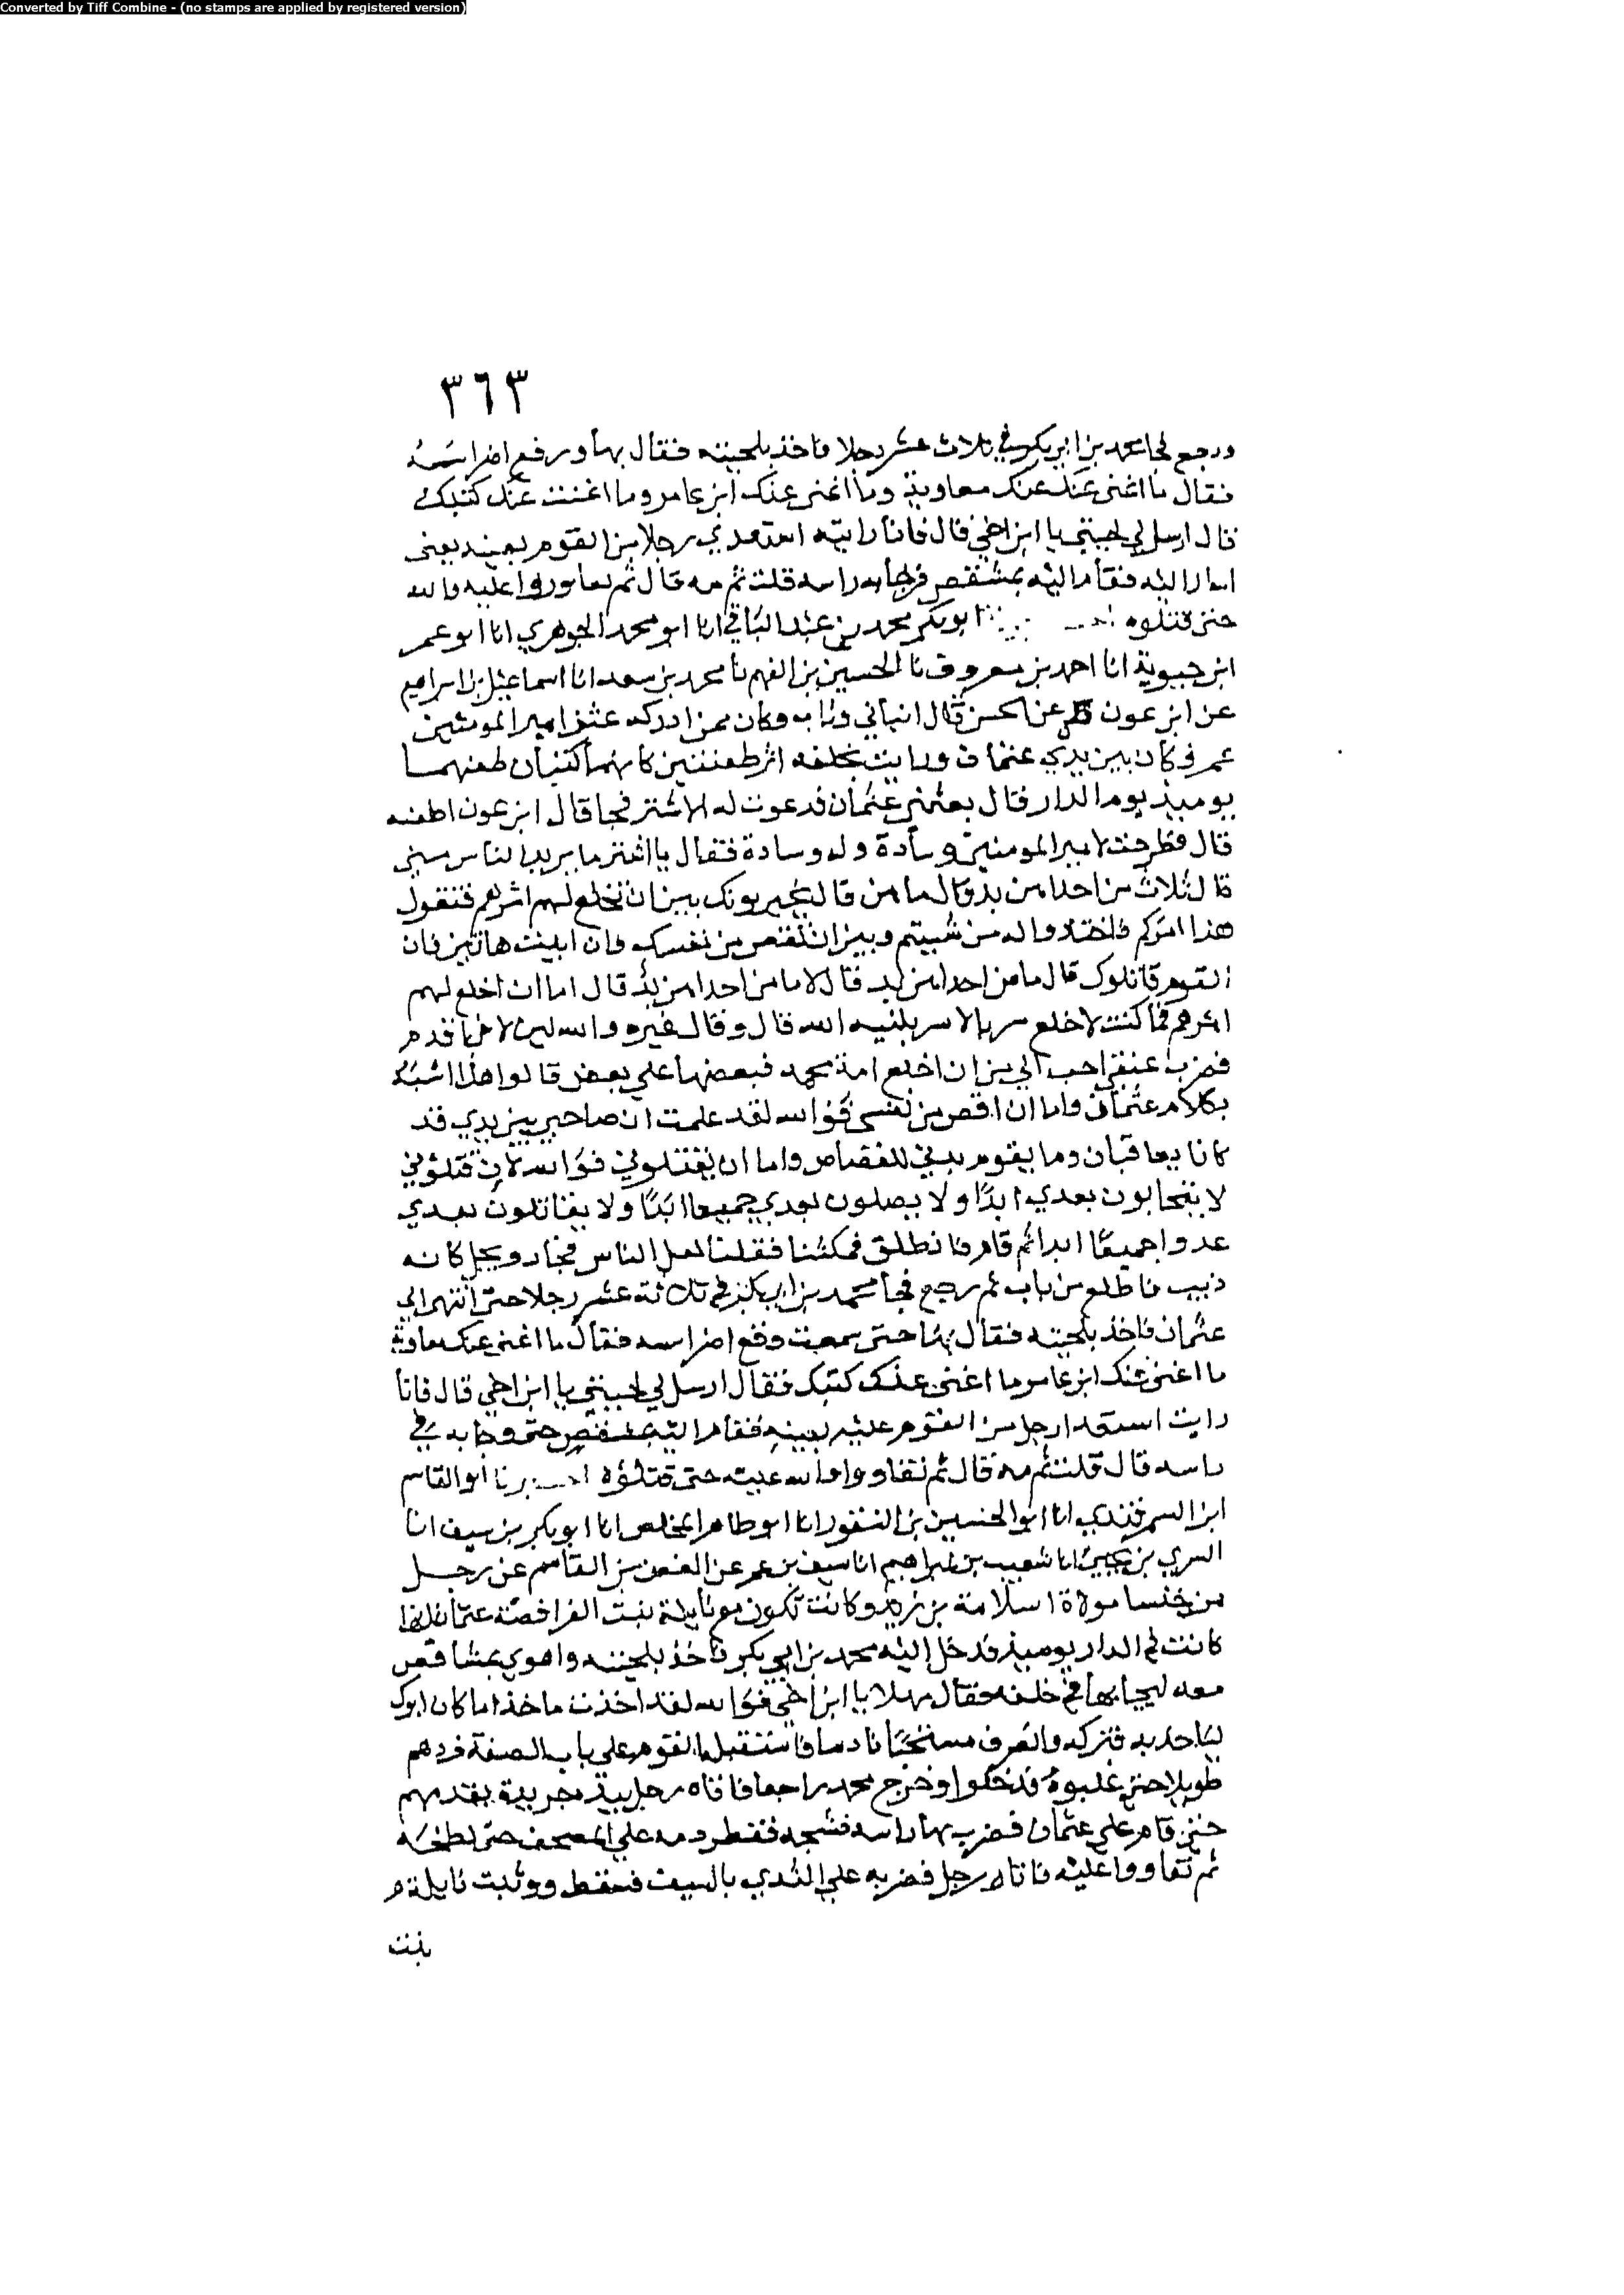 Converted by Tiff Combine - (no stamps are applied by registered version)
٣٦٣
ورجع فجا محمد بن ابي بكر في ثلاث عشر رجلا فاخذ بلحيته فقال بها ورفع اضراسه
فقال ما اغنى عنك معاوية وما اغنى عنك ابن عامر وما اغنت عنك كتبك
قال ارسل لي لحيتي يا ابن اخي قال فانا رايته استعدي رجلا من القوم بعينه يعنى
اشار اليه فقام اليه بمشقص فوجا به راسه قلت ثم مه قال ثم تعاوروا عليه والله
حتى قتلوه ابو بكر محمد بن عبد الباقي انا ابو محمد الجوهري انا ابو عمر
ابن حيوية انا احمد بن معروف نا الحسين بن الفهم نا محمد بن سعد انا اسماعيل بن ابراهيم
عن ابن عون عن الحسن قال انباني وثاب وكان ممن ادركه عتق امير المومنين
عمر فكان بين يدي عثمان ورايت بحلقه اثر طعنتين كانهما كتبان طعنهما
يوميذ يوم الدار قال بعثني عثمان فدعوت له الاشتر فجا قال ابن عون اظنه
قال فطرحت لامير المومنين وسادة وله وسادة فقال يا اشتر ما يريد الناس مني
قال ثلاث من احداهن بد قال ما هن قال يخيرونك بين ان تخلع لهم امرهم فتقول
هذا امركم فاختاروا له من شيتم وبين ان تقتص من نفسك فان ابيت هاتين فان
القوم قاتلوك قال ما من احداهن بد قال لا ما من احداهن بد قال اما ان اخلع لهم
امرهم فما كنت لاخلع سربالا سربلنيه الله قال وقال غيره والله لين لان اقدم
فضرب عنقي احب الي من ان اخلع امة محمد فبعضها على بعض قالوا هذا اشبه
بكلام عثمان واما ان اقص من نفسي فوالله لقد علمت ان صاحبي بين يدي قد
كانا يعاقبان وما يقوم بدني للقصاص واما ان يقتلوني فوالله لان قتلوني
لا يتحابون بعدي ابدا ولا يصلون بعدي جميعا ابدا ولا يقاتلون بعدي
عدوا جميعا ابدا ثم قام فانطلق فمكثنا فقلنا لعل الناس فجا رويجل كانه
ذيب فاطلع من باب ثم رجع فجا محمد بن ابي بكر في ثلاثة عشر رجلا حتى انتهى الي
عثمان فاخذ بلحيته فقال بها حتى سمعت وقع اضراسه فقال ما اغنى عنك معاوية
ما اغنى عنك ابن عامر ما اغنى عنك كتبك فقال ارسل لي لحيتي يا ابن اخي قال فانا
رايت استعدا رجل من القوم عليه بعينه فقام اليه بمشقص حتى وجا به في
راسه قال قلت ثم مه قال ثم تغاووا والله عليه حتى قتلوه اخـــبرنا ابو القاسم
ابن السمرقندي انا ابو الحسين بن النقور انا ابو طاهر المخلص انا ابو بكر بن سيف انا
السري بن يحيى انا شعيب بن ابراهيم انا سيف بن عمر عن الغصن بن القاسم عن رجل
من خنسا مولاة اسلامة بن زيد وكانت تكون مع نايلة بنت الفرافصة عثمان انها
كانت في الدار يوميذ فدخل اليه محمد بن ابي بكر فاخذ بلحيته واهوي بمشاقص
معه ليجا بها في حلقه فقال مهلا يا ابن اخي فوالله لقد اخذت ماخذا ما كان ابوك
لياخذ به فتركه وانصرف مستحيا نادما فاستقبله القوم على باب الصفة فردهم
طويلا حتى غلبوه فدخلوا وخرج محمد راجعا فاتاه رجل بيده جريدة يقدمهم
حتى قام على عثمان فضرب بها راسه فشجه فقطر دمه على المصحف حتى لطخه
ثم تغاووا عليه فاتاه رجل فضربه على الثدي بالسيف فسقط ووثبت نايلة
بنت